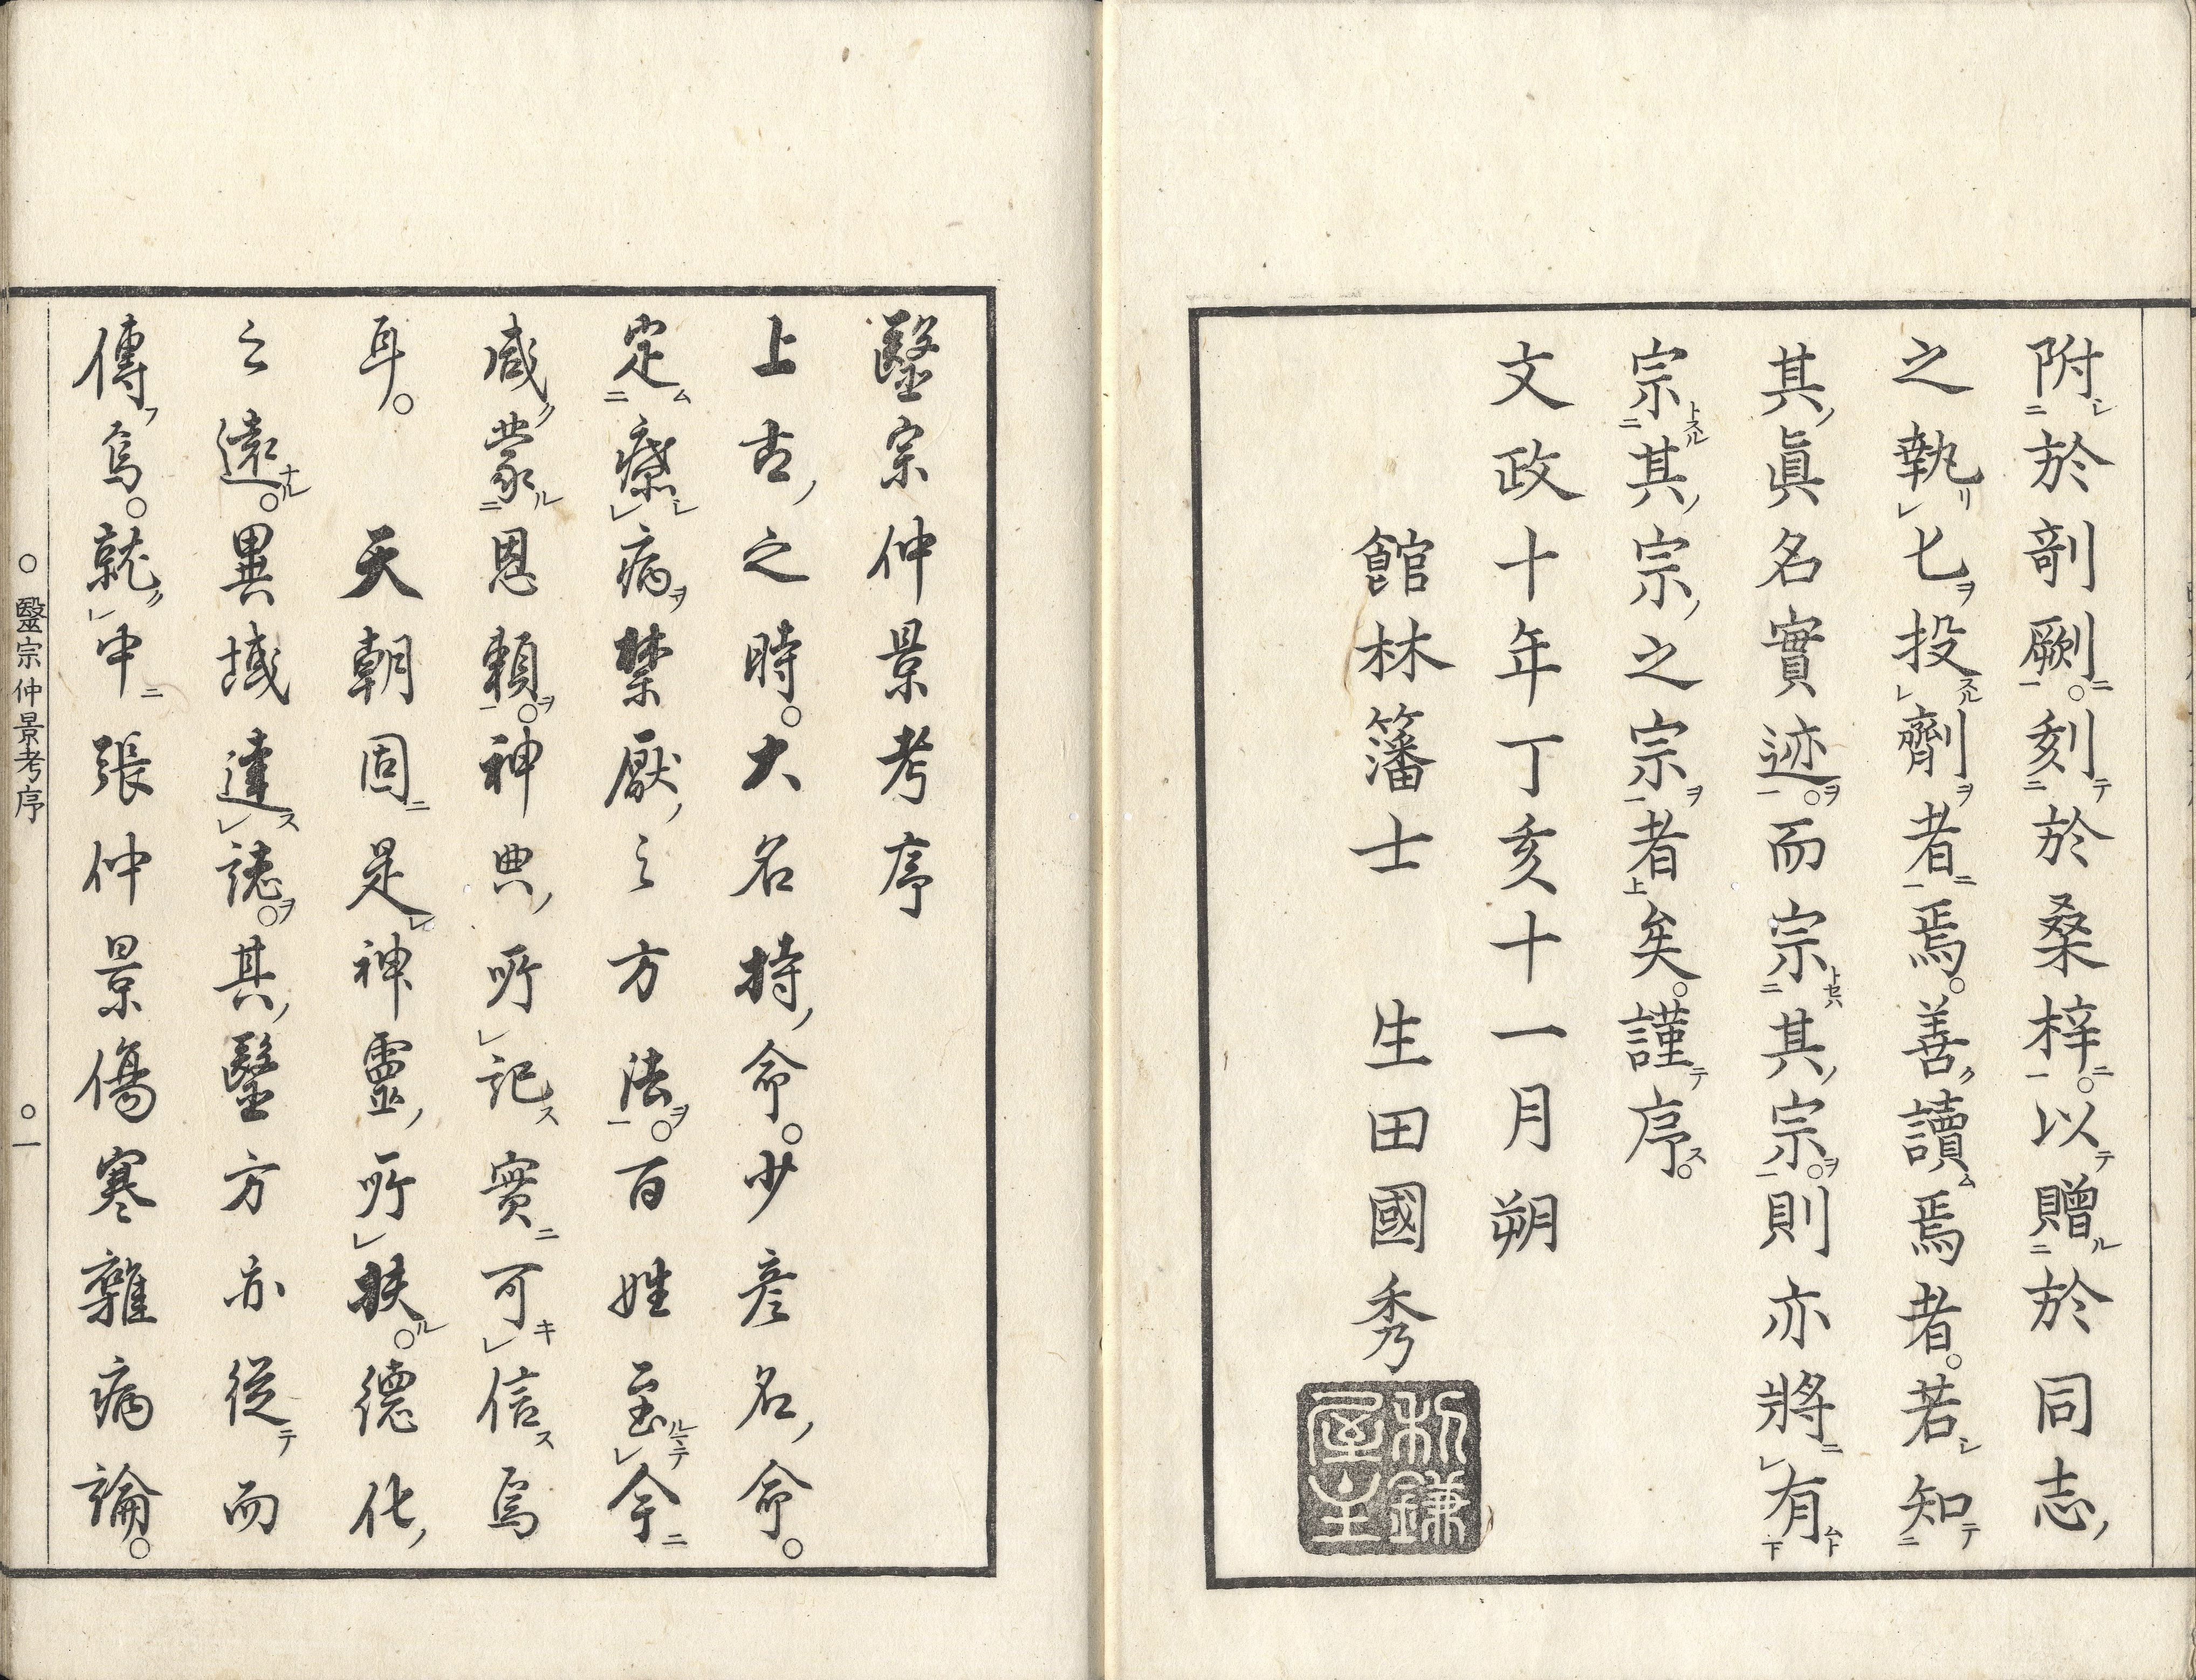 附於剞劂。刻於桑梓。以贈於同志
之執匕投劑者焉。善讀焉者。若知
其眞名實迹。而宗其宗。則亦將有
宗其宗之宗者矣。謹序。
文政十年丁亥十一月朔
館林籓士 生田國秀
毉宗仲景考序
上古之時。大名持命。少彦名命。
定療病禁厭之方法。百姓至今
咸蒙恩頼。神典所記實可信焉
耳。 天朝固是神靈所扶。德化
之遠。異域達誌。其毉方亦從而
傳焉。就中張仲景傷寒雜病論。
○毉宗仲景考序 ○一